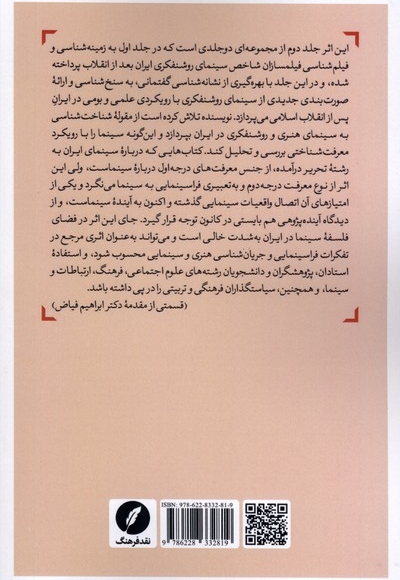 این اثر جلد دوم از مجموعه‌ای دوجلدی است که در جلد اول به زمینه‌شناسی و
فیلم‌شناسی فیلمسازان شاخص سینمای روشنفکری ایران بعد از انقلاب پرداخته
شده، و در این جلد با بهره‌گیری از نشانه‌شناسی گفتمانی، به سنخ‌شناسی و ارائهٔ
صورت‌بندی جدیدی از سینمای روشنفکری با رویکردی علمی و بومی در ایرانِ
پس از انقلاب اسلامی می‌پردازد. نویسنده تلاش کرده است از مقولهٔ شناخت‌شناسی
به سینمای هنری و روشنفکری در ایران بپردازد و این‌گونه سینما را با رویکرد
معرفت‌شناختی بررسی و تحلیل کند. کتاب‌هایی که دربارهٔ سینمای ایران به
رشتهٔ تحریر درآمده، از جنس معرفت‌های درجه‌اول دربارهٔ سینماست، ولی این
اثر از نوع معرفت درجه‌دوم و به‌تعبیری فراسینمایی به سینما می‌نگرد و یکی از
امتیازهای آن اتصال واقعیات سینمایی گذشته و اکنون به آیندهٔ سینماست، و از
دیدگاه آینده‌پژوهی هم بایستی در کانون توجه قرار گیرد. جای این اثر در فضای
فلسفهٔ سینما در ایران به‌شدت خالی است و می‌تواند به‌عنوان اثری مرجع در
تفکرات فراسینمایی و جریان‌شناسی هنری و سینمایی محسوب شود، و استفادهٔ
استادان، پژوهشگران و دانشجویان رشته‌های علوم اجتماعی، فرهنگ، ارتباطات و
سینما، و همچنین، سیاستگذاران فرهنگی و تربیتی را در پی داشته باشد.
(قسمتی از مقدمهٔ دکتر ابراهیم فیاض)
ISBN: 978-622-8332-81-9
9 786228 332819
نقد فرهنگ